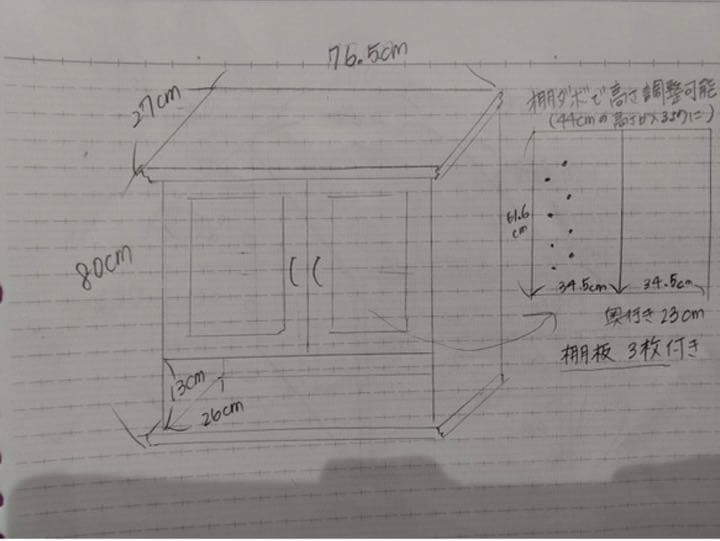 76.5cm
27cm
棚ダボで高さ調整可能
(44cmの高さが
80cm
61.6
cm
34.5cm
34.5cm
奥行き23cm
棚板 3枚付き
13cm
26cm